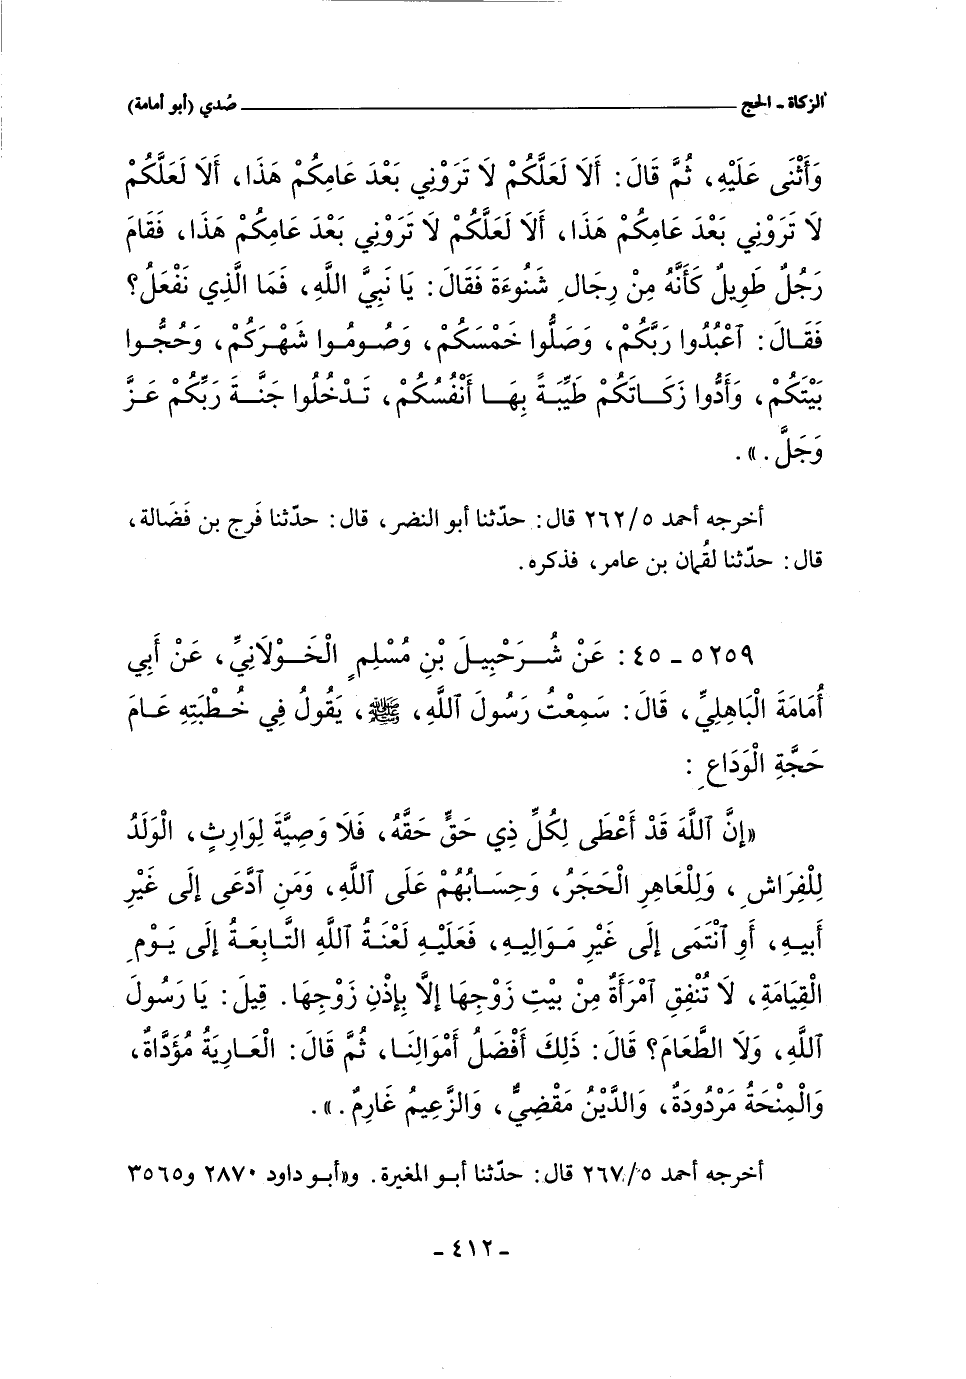 الزكاة - الحج ــــــــــ صُدي (أبو أمامة)
وَأَثْنَى عَلَيْهِ، ثُمَّ قَالَ: أَلَا لَعَلَّكُمْ لَا تَرَوْنِي بَعْدَ عَامِكُمْ هَذَا، أَلَا لَعَلَّكُمْ
لَا تَرَوْنِي بَعْدَ عَامِكُمْ هَذَا، أَلَا لَعَلَّكُمْ لَا تَرَوْنِي بَعْدَ عَامِكُمْ هَذَا، فَقَامَ
رَجُلٌ طَوِيلٌ كَأَنَّهُ مِنْ رِجَالِ شَنُوءَةَ فَقَالَ: يَا نَبِيَّ اللَّهِ، فَمَا الَّذِي نَفْعَلُ؟
فَقَـالَ: ٱعْبُدُوا رَبَّكُمْ، وَصَلُّوا خَمْسَكُمْ، وَصُومُوا شَهْرَكُمْ، وَحُجُّوا
بَيْتَكُمْ، وَأَدُّوا زَكَاتَكُمْ طَيِّبَةً بِهَا أَنْفُسُكُمْ، تَدْخُلُوا جَنَّةَ رَبِّكُمْ عَزَّ
وَجَلَّ.».
أخرجه أحمد ٢٦٢/٥ قال: حدّثنا أبو النضر، قال: حدّثنا فَرج بن فَضَالة،
قال: حدّثنا لُقمان بن عامر، فذكره.
٥٢٥٩ - ٤٥: عَنْ شُرَحْبِيلَ بْنِ مُسْلِمٍ الْخَوْلَانِيِّ، عَنْ أَبِي
أُمَامَةَ الْبَاهِلِيِّ، قَالَ: سَمِعْتُ رَسُولَ ٱللَّهِ، ﷺ، يَقُولُ فِي خُطْبَتِهِ عَامَ
حَجَّةِ الْوَدَاعِ:
«إِنَّ ٱللَّهَ قَدْ أَعْطَى لِكُلِّ ذِي حَقٍّ حَقَّهُ، فَلَا وَصِيَّةَ لِوَارِثٍ، الْوَلَدُ
لِلْفِرَاشِ، وَلِلْعَاهِرِ الْحَجَرُ، وَحِسَابُهُمْ عَلَى ٱللَّهِ، وَمَنِ ٱدَّعَى إِلَى غَيْرِ
أَبِيهِ، أَوِ ٱنْتَمَى إِلَى غَيْرِ مَوَالِيهِ، فَعَلَيْهِ لَعْنَةُ ٱللَّهِ التَّابِعَةُ إِلَى يَوْمِ
الْقِيَامَةِ، لَا تُنْفِقِ ٱمْرَأَةٌ مِنْ بَيْتِ زَوْجِهَا إِلَّا بِإِذْنِ زَوْجِهَا. قِيلَ: يَا رَسُولَ
ٱللَّهِ، وَلَا الطَّعَامَ؟ قَالَ: ذَلِكَ أَفْضَلُ أَمْوَالِنَا، ثُمَّ قَالَ: الْعَارِيَةُ مُؤَدَّاةٌ،
وَالْمِنْحَةُ مَرْدُودَةٌ، وَالدَّيْنُ مَقْضِيٌّ، وَالزَّعِيمُ غَارِمٌ.».
أخرجه أحمد ٢٦٧/٥ قال: حدّثنا أبو المغيرة. و«أبو داود» ٢٨٧٠ و٣٥٦٥
- ٤١٢ -